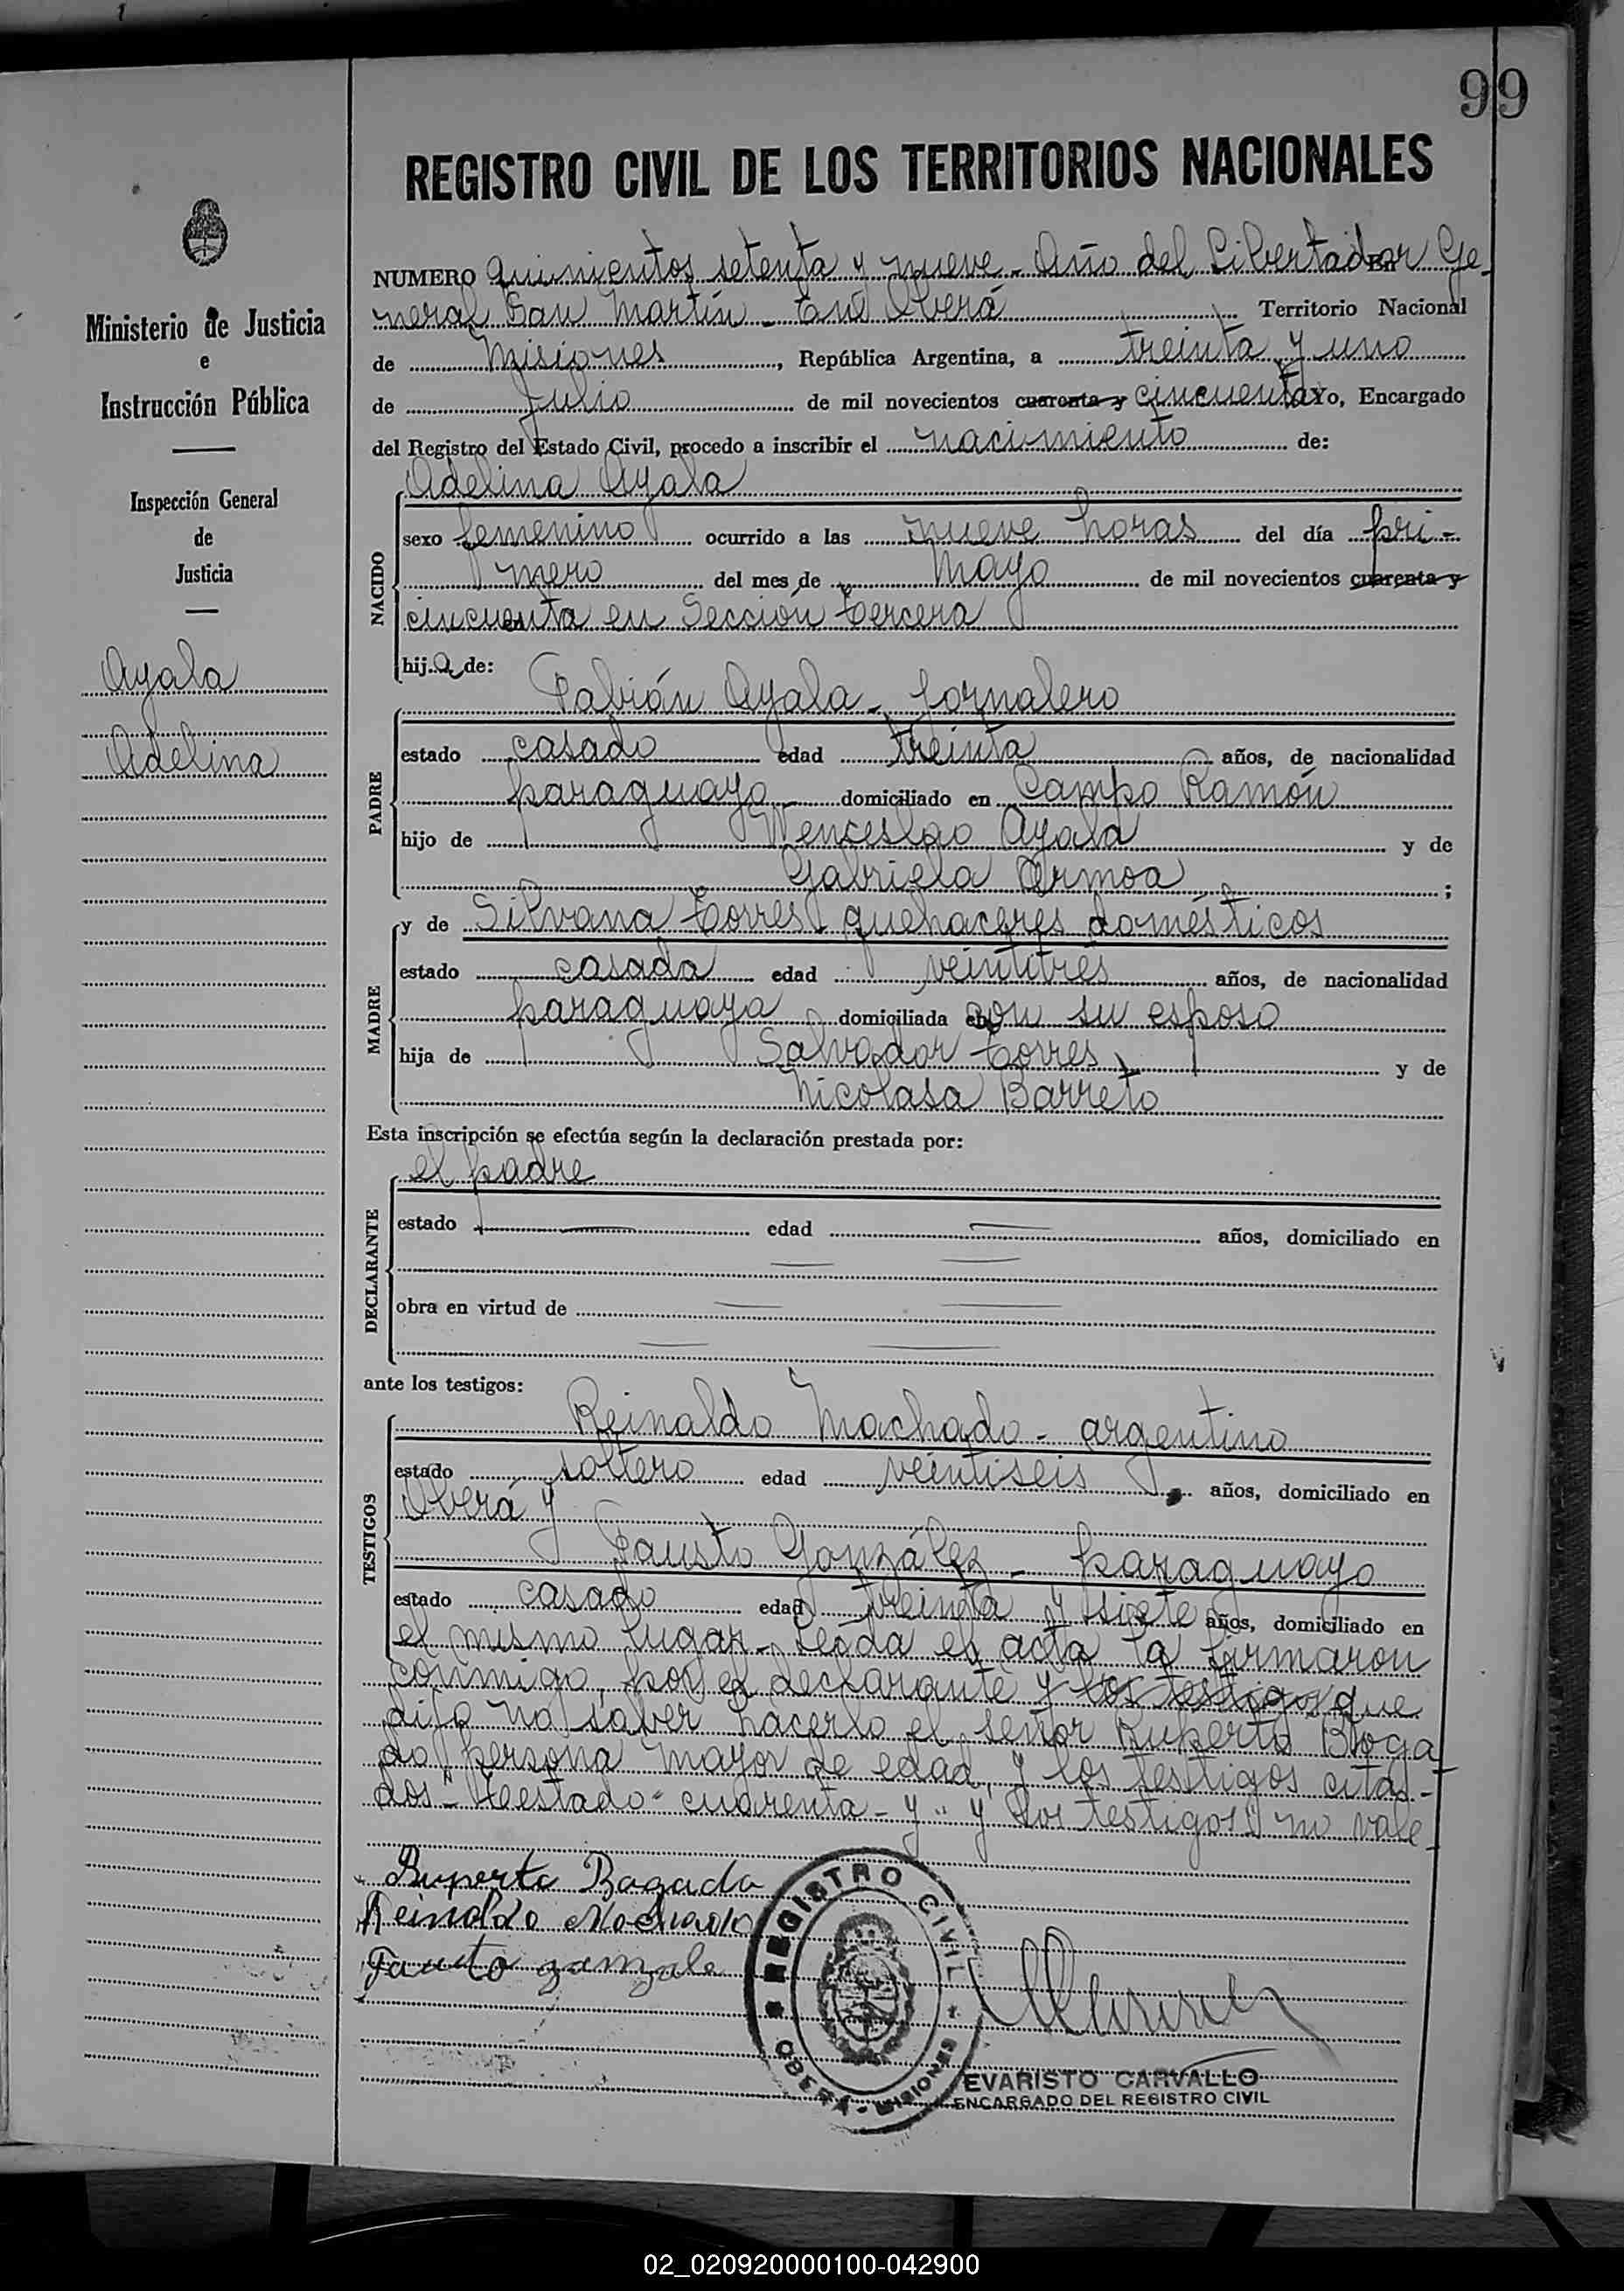 99
REGISTRO CIVIL DE LOS TERRITORIOS NACIONALES
Ministerio de Justicia
e
Instrucción Pública
Inspección General
de
Justicia
Ayala
Adelina
NUMERO quinientos setenta y nueve - Año del Libertador Ge-
neral San Martín - En Oberá Territorio Nacional
de Misiones, República Argentina, a treinta y uno
de Julio de mil novecientos cuarenta y cincuenta yo, Encargado
del Registro del Estado Civil, procedo a inscribir el nacimiento de:
Adelina Ayala
NACIDO
sexo femenino ocurrido a las nueve horas del día pri-
mero del mes de Mayo de mil novecientos cuarenta y
cincuenta en Sección tercera
hija de:
PADRE
Fabián Ayala - Jornalero
estado casado edad treinta años, de nacionalidad
paraguayo domiciliado en Campo Ramón
hijo de Wenceslao Ayala y de
Gabriela Armoa ;
MADRE
y de Silvana Torres quehaceres domésticos
estado casada edad veintitres años, de nacionalidad
paraguaya domiciliada con su esposo
hija de Salvador Torres y de
Nicolasa Barreto
Esta inscripción se efectúa según la declaración prestada por:
DECLARANTE
el padre
estado edad años, domiciliado en
obra en virtud de
ante los testigos:
TESTIGOS
Reinaldo Machado - argentino
estado soltero edad veintiseis años, domiciliado en
Oberá y
Fausto González - paraguayo
estado casado edad treinta y siete años, domiciliado en
el mismo lugar - Leída el acta la firmaron
conmigo, por el declarante y los testigos que
dijo no saber hacerlo el señor Ruperto Boga
do persona mayor de edad, y los testigos cita-
dos - Testado "cuarenta - y" "y los testigos" no vale -
Ruperto Bogado
Reinaldo Machado
Fausto gonzale
REGISTRO CIVIL
OBERÁ - MISIONES
EVARISTO CARVALLO
ENCARGADO DEL REGISTRO CIVIL
02_020920000100-042900